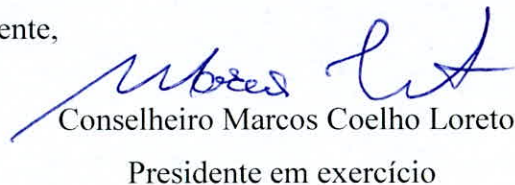 ente,
Conselheiro Marcos Coelho Loreto
Presidente em exercício